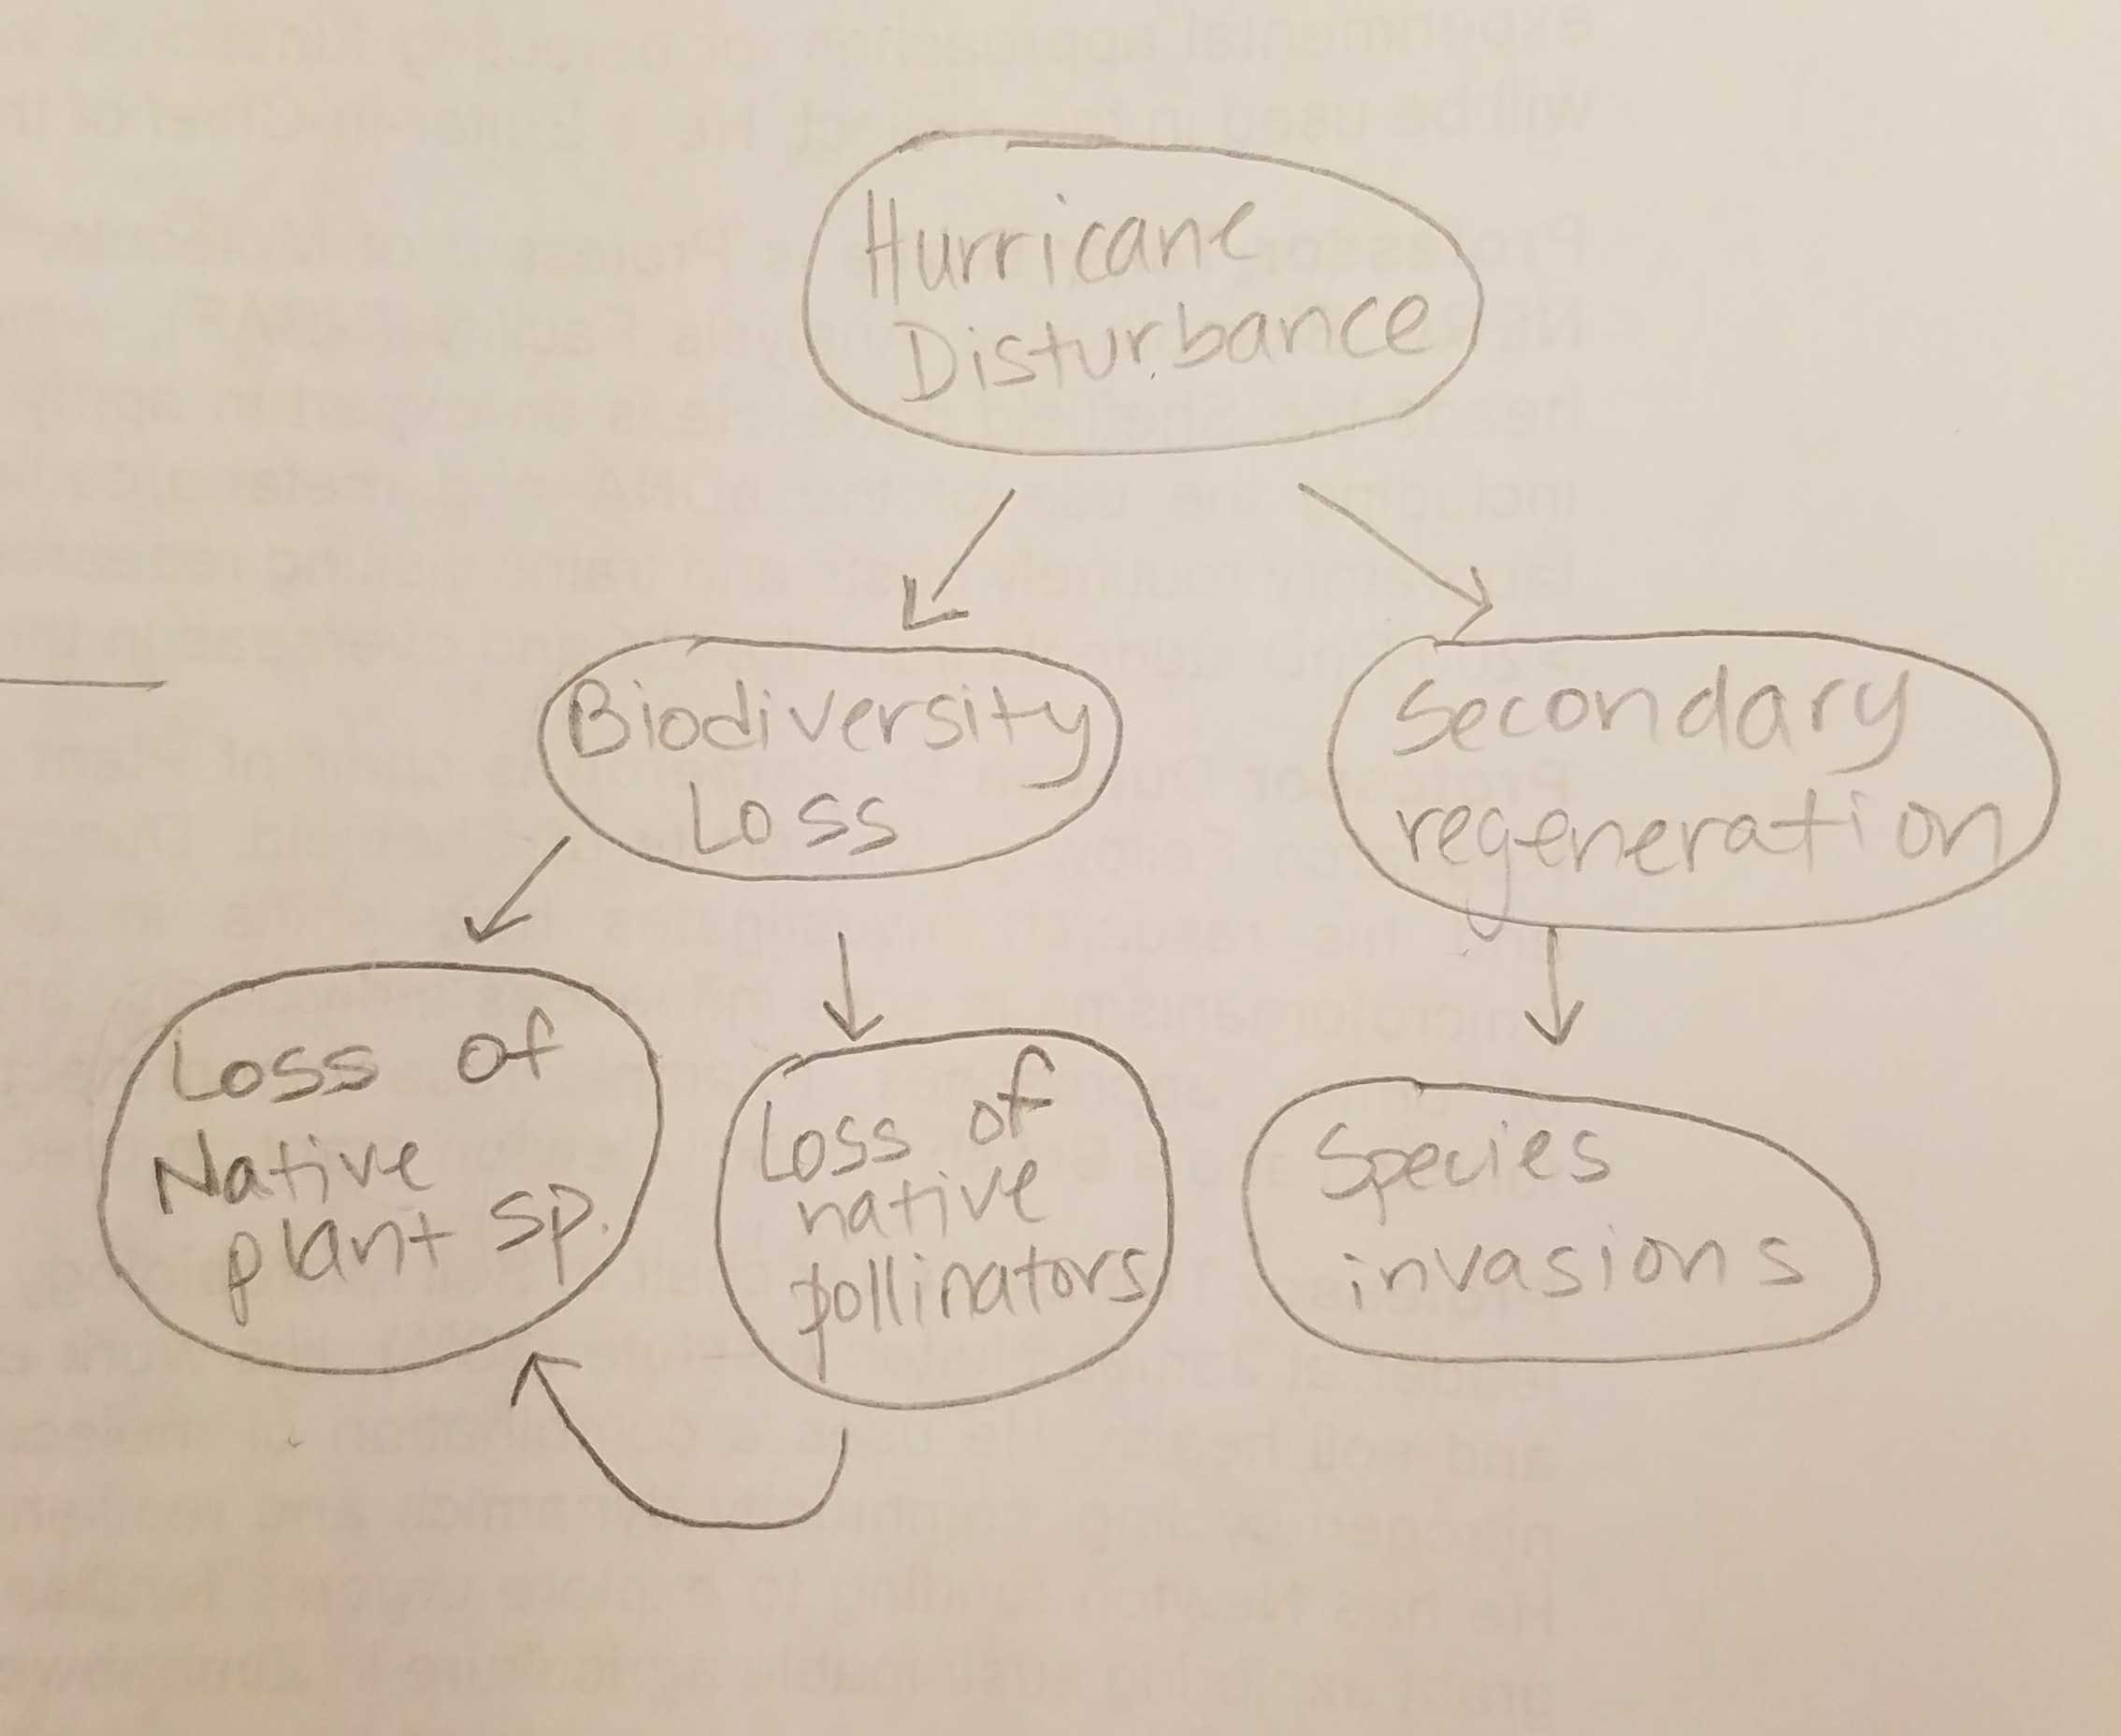 Hurricane
Disturbance
Biodiversity
Loss
Secondary
regeneration
Loss of
Native
plant sp.
Loss of
native
pollinators
Species
invasions